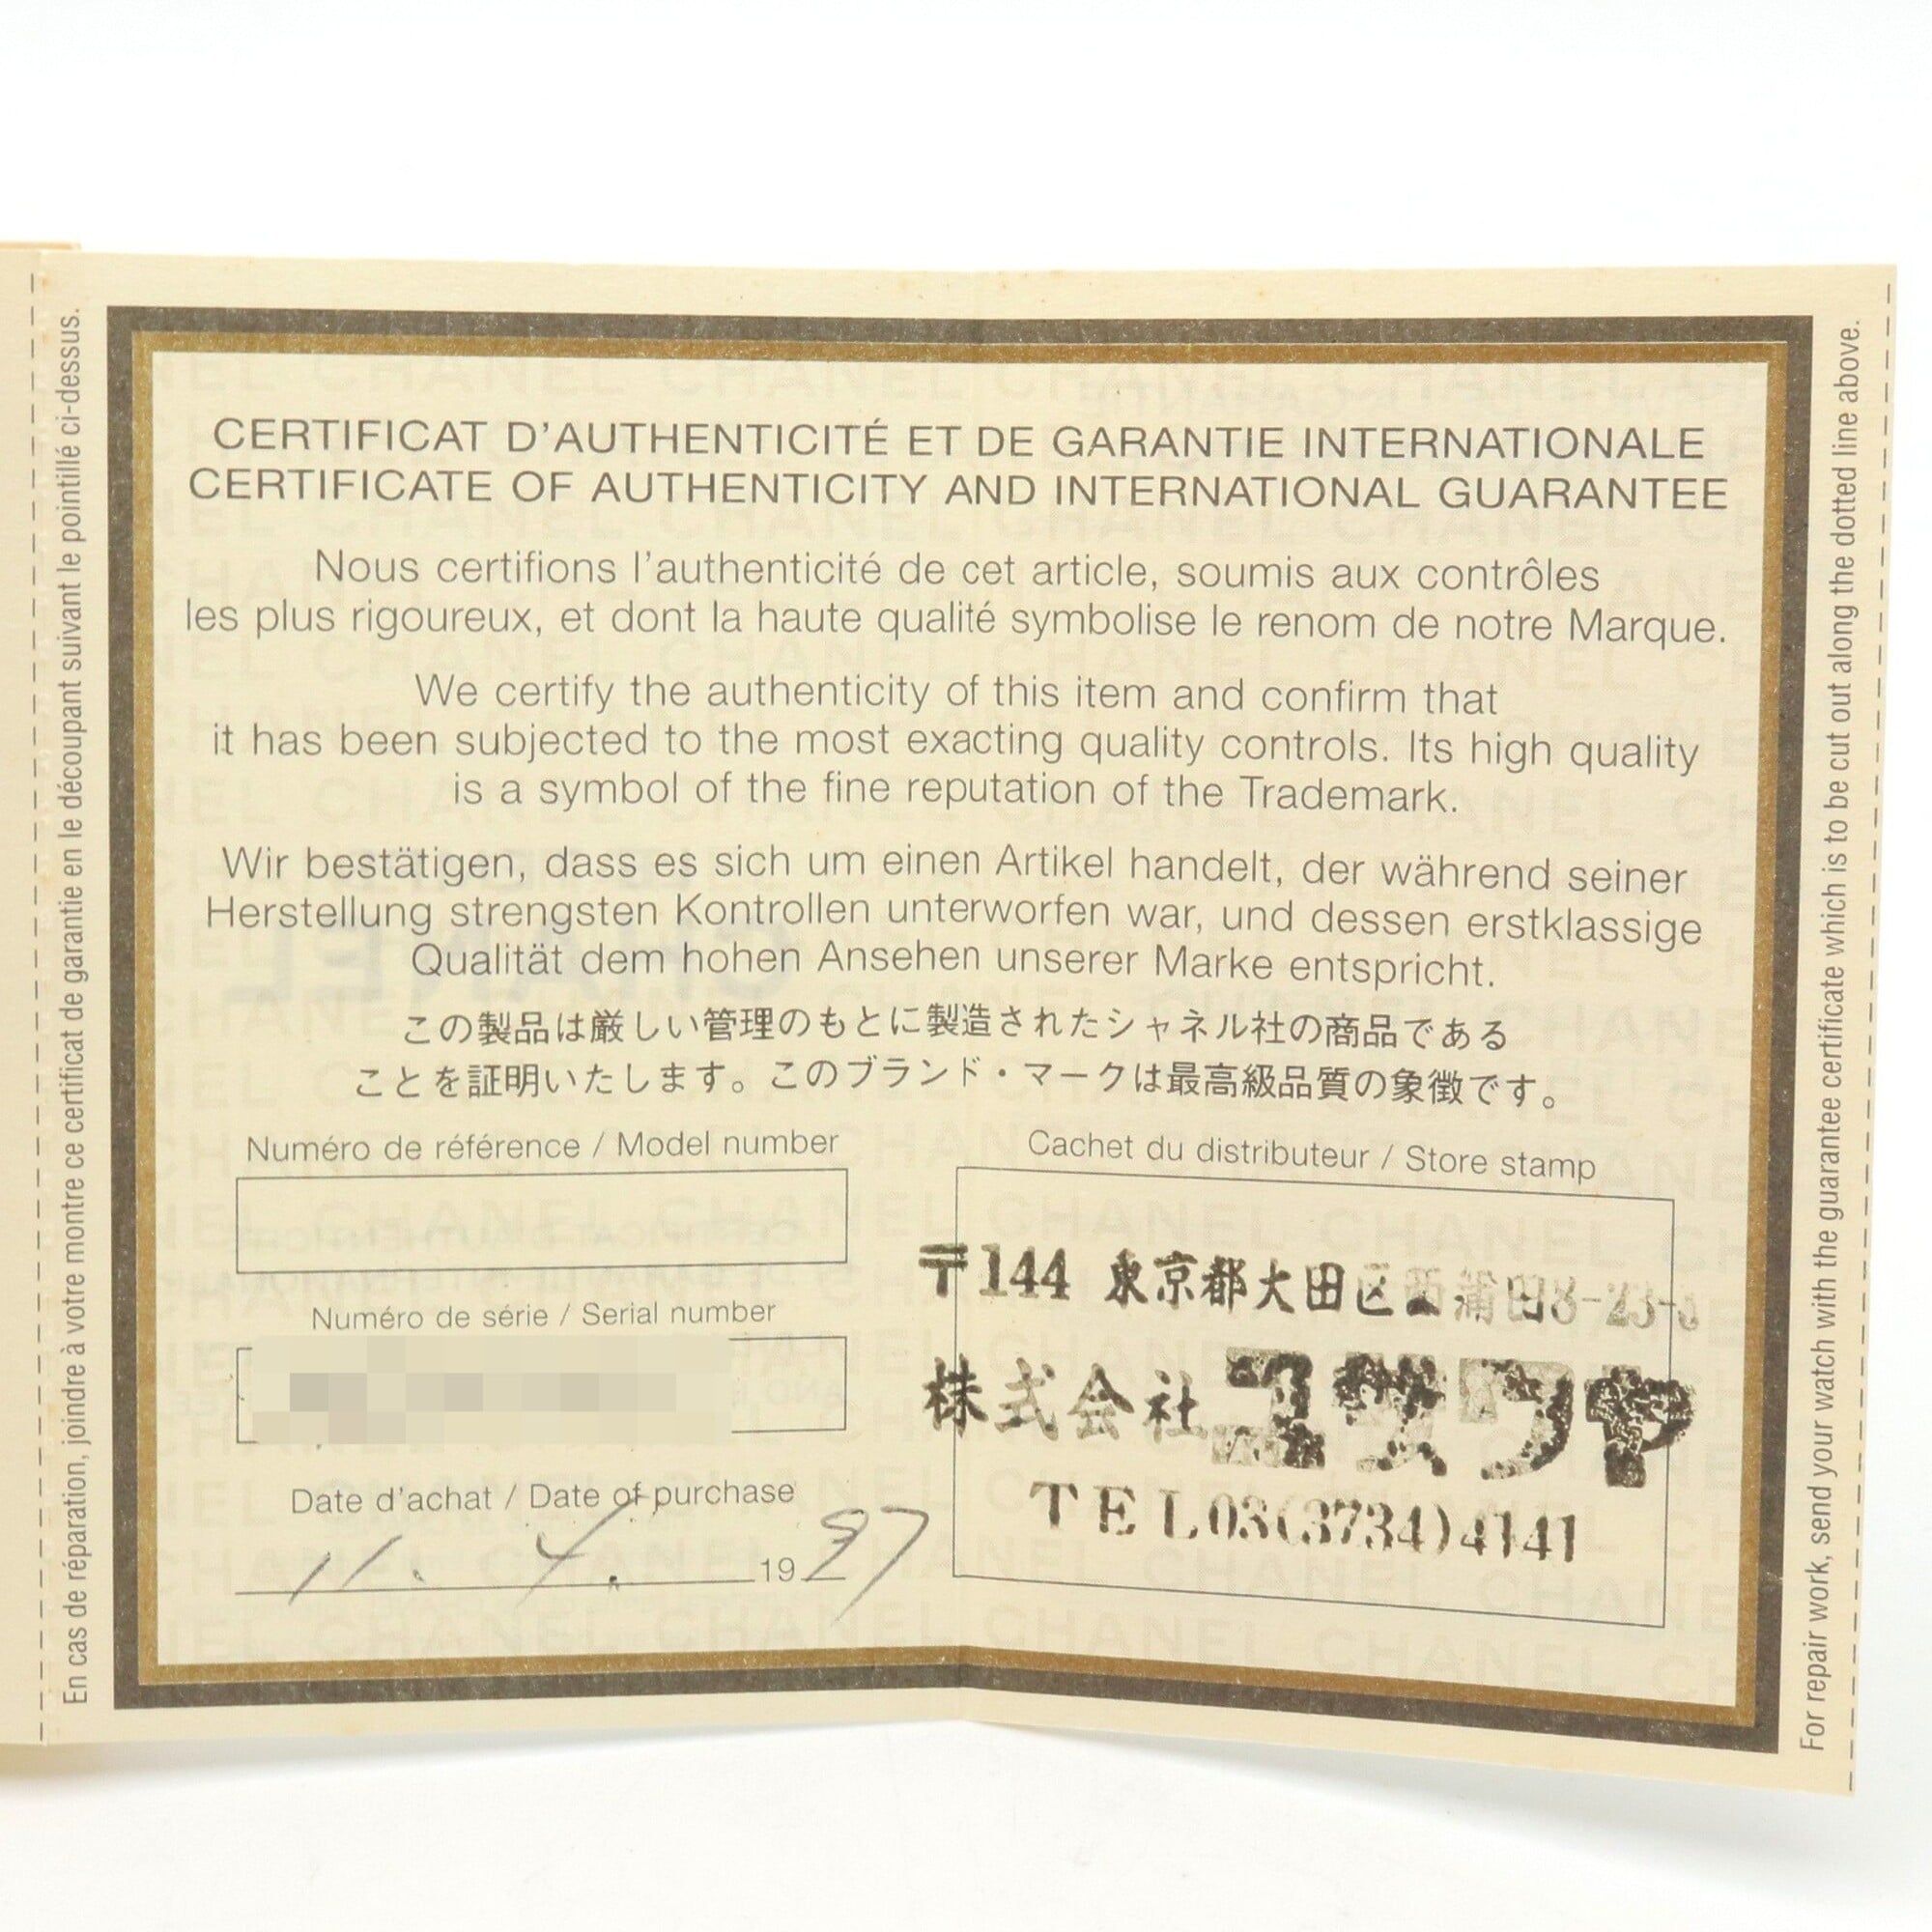 En cas de réparation, joindre à votre montre ce certificat de garantie en le découpant suivant le pointillé ci-dessus.
CERTIFICAT D'AUTHENTICITÉ ET DE GARANTIE INTERNATIONALE
CERTIFICATE OF AUTHENTICITY AND INTERNATIONAL GUARANTEE
Nous certifions l'authenticité de cet article, soumis aux contrôles
les plus rigoureux, et dont la haute qualité symbolise le renom de notre Marque.
We certify the authenticity of this item and confirm that
it has been subjected to the most exacting quality controls. Its high quality
is a symbol of the fine reputation of the Trademark.
Wir bestätigen, dass es sich um einen Artikel handelt, der während seiner
Herstellung strengsten Kontrollen unterworfen war, und dessen erstklassige
Qualität dem hohen Ansehen unserer Marke entspricht.
この製品は厳しい管理のもとに製造されたシャネル社の商品である
ことを証明いたします。このブランド・マークは最高級品質の象徴です。
Numéro de référence / Model number
Numéro de série / Serial number
Date d'achat / Date of purchase
11. 4. 1997
Cachet du distributeur / Store stamp
〒144 東京都大田区西蒲田8-23-
株式会社
TEL03(3734)4141
For repair work, send your watch with the guarantee certificate which is to be cut out along the dotted line above.